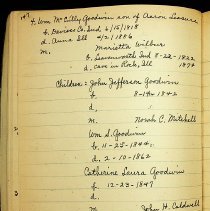 4. Wm McCilly Goodwin son of Aaron
b. Daviess Co. Ind 6/15/1818
d. Anna Ill 4/2/1886
m. Marietta Wilber
b. Leavenworth Ind 8-22-1822
d. Cave in Rock, Ill 1874
Children = John Jefferson Goodwin
b. 8-19-1842
d.
m. Norah C. Mitchell
Wm S. Goodwin
b. 11-25-1844
d. 2-10-1862
Catherine Laura Goodwin
b. 12-23-1847
d.
m. John H. Caldwell